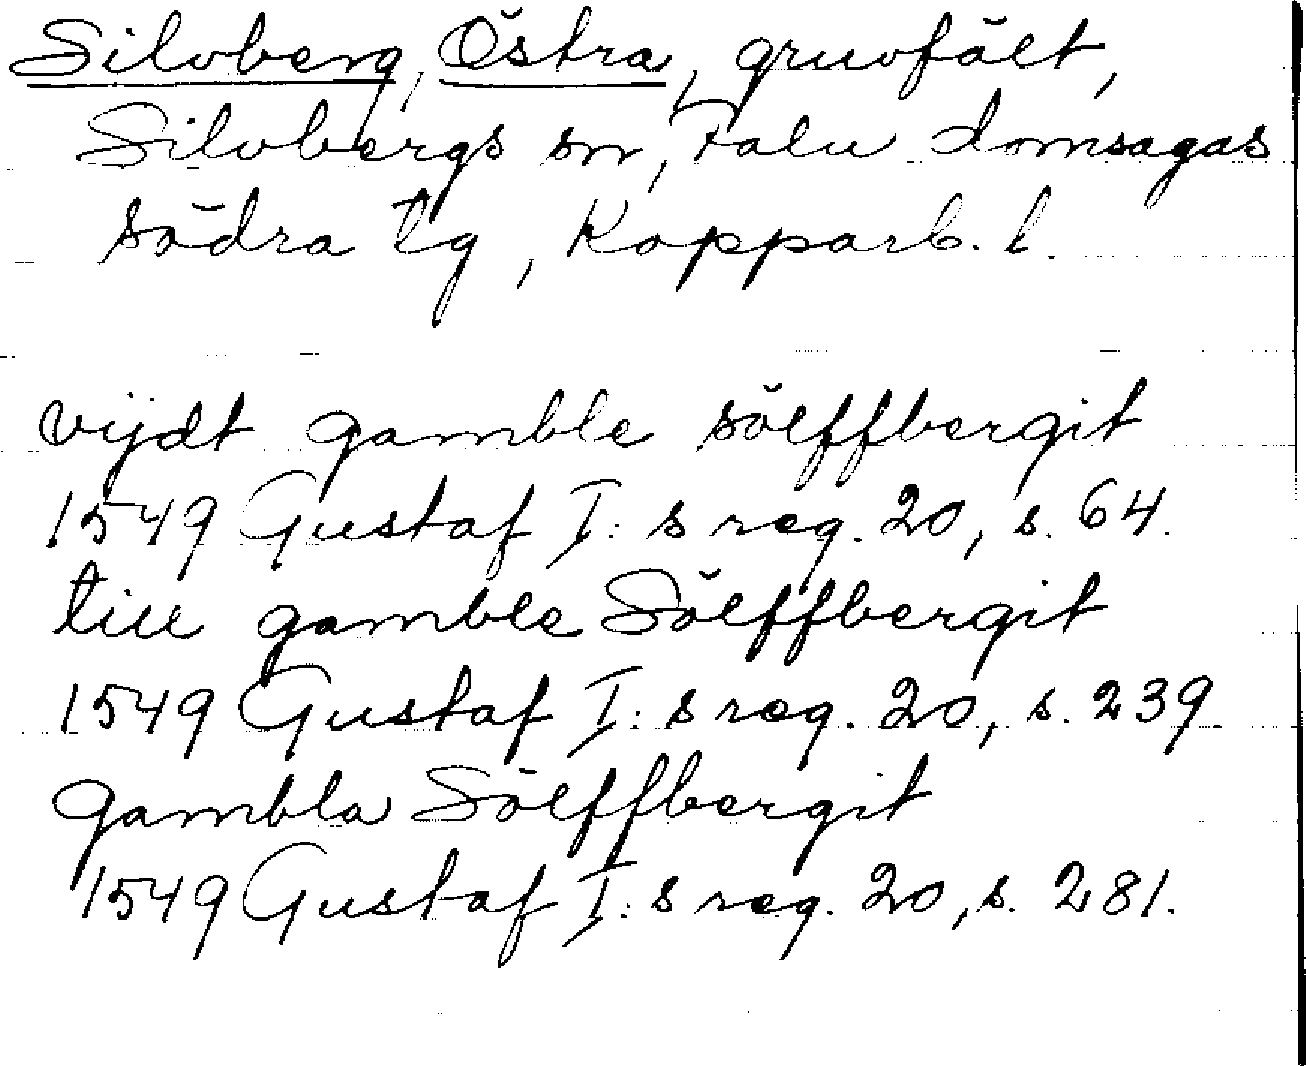 Silvberg, Östra, gruvfält,
Silvbergs sn, Falu domsagas
södra tg, Kopparb. l.
vijdt gamble sölffbergit
1549 Gustaf I:s reg. 20, s. 64.
till gamble Sölffbergit
1549 Gustaf I:s reg. 20, s. 239
Gambla Sölffbergit
1549 Gustaf I:s reg. 20, s. 281.